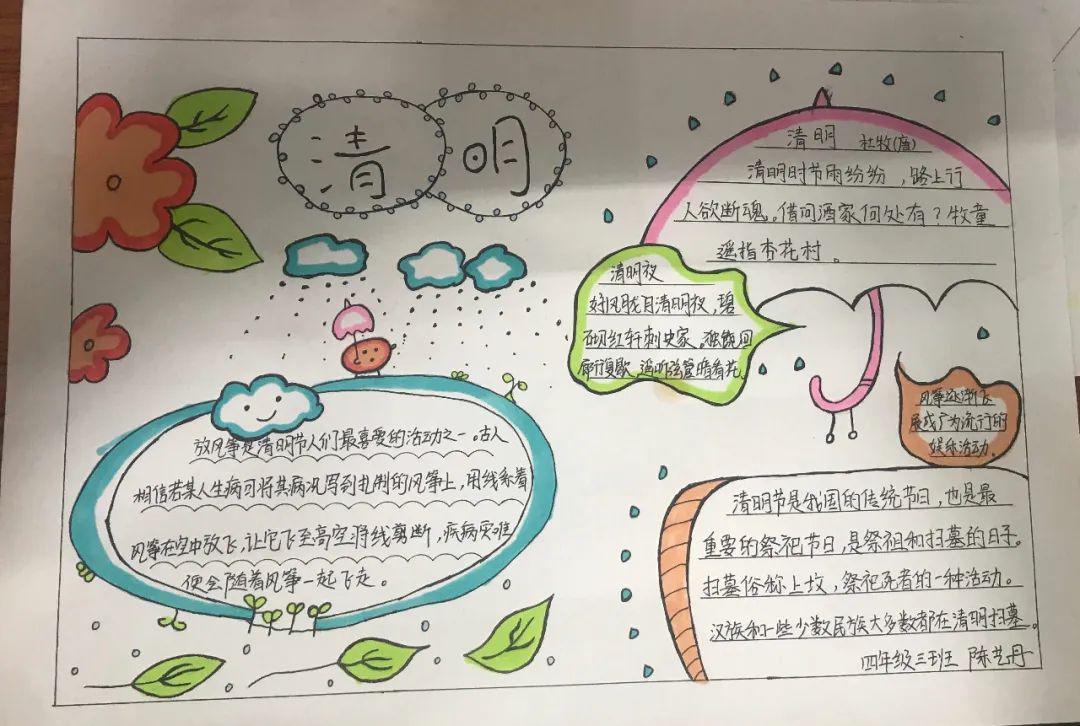 清明
清明 杜牧(唐)
清明时节雨纷纷，路上行
人欲断魂。借问酒家何处有？牧童
遥指杏花村。
清明夜
好风胧月清明夜，碧
砌红轩刺史家。独绕回
廊行复歇，遥听弦管暗看花。
风筝逐渐
展成广为流行的
娱乐活动。
放风筝是清明节人们最喜爱的活动之一。古人
相信若某人生病可将其病况写到扎制的风筝上，用线系着
风筝在空中放飞，让它飞至高空将线剪断，疾病灾难
便会随着风筝一起飞走。
清明节是我国的传统节日，也是最
重要的祭祀节日，是祭祖和扫墓的日子。
扫墓俗称上坟，祭祀死者的一种活动。
汉族和一些少数民族大多数都在清明扫墓。
四年级三班 陈艺丹